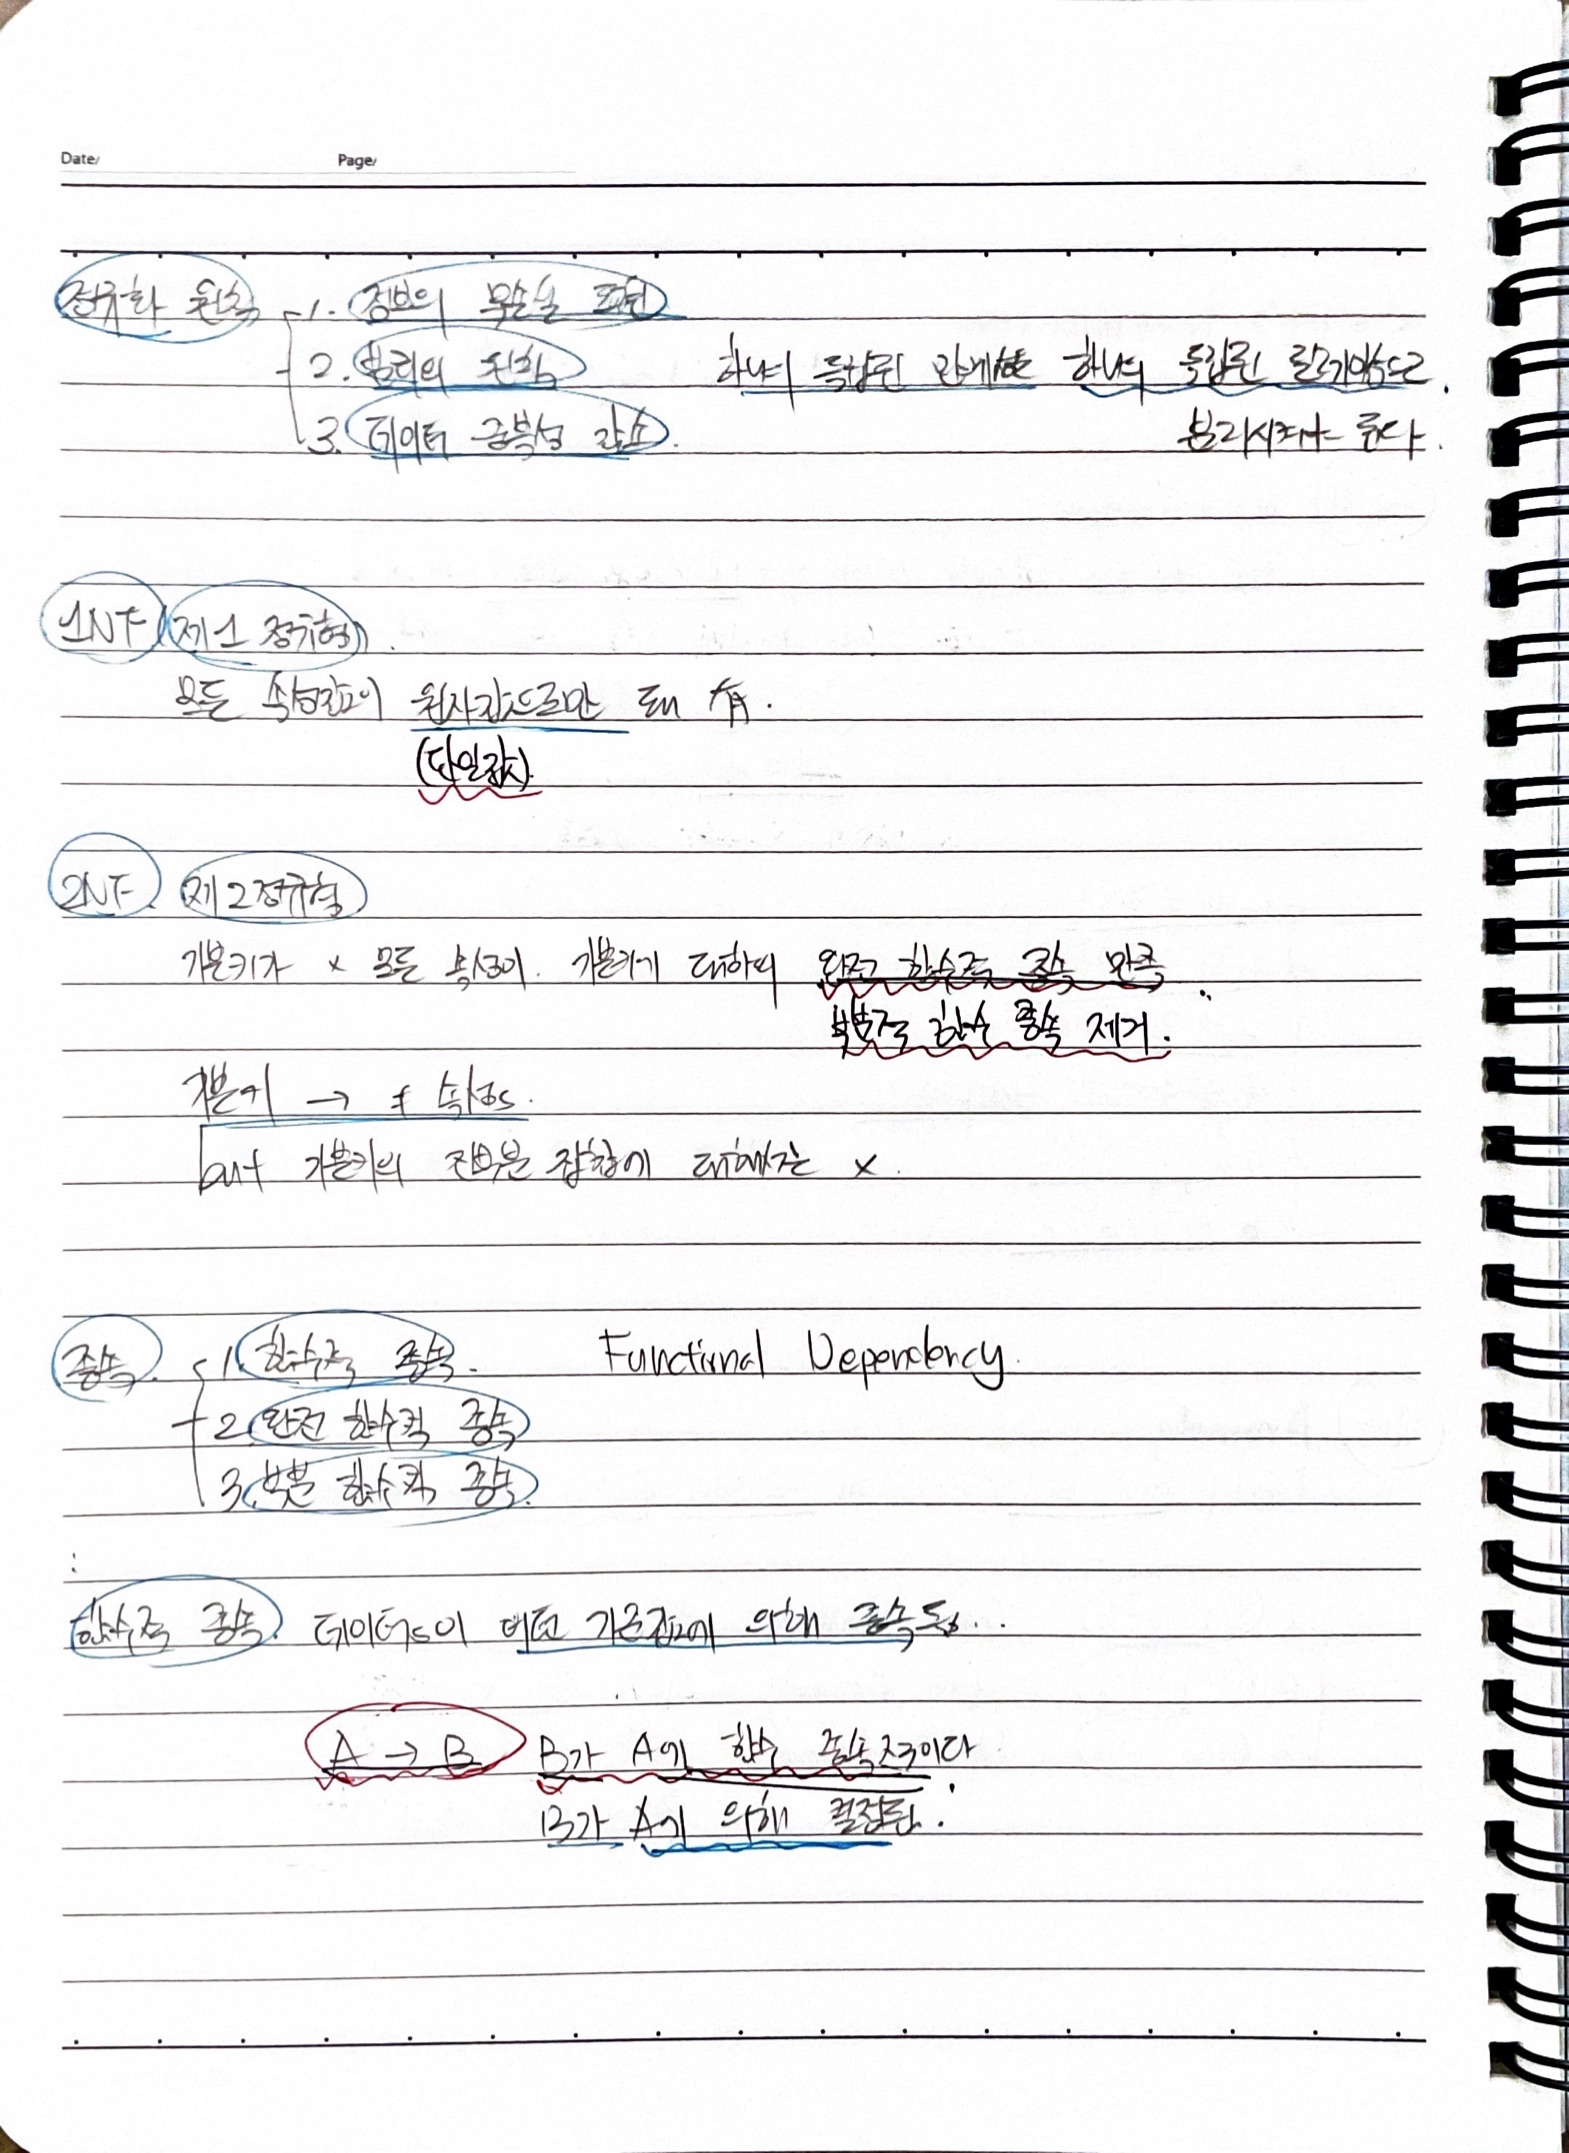 Date/ Page/
정규화 원칙 1. 정보의 무손실 표현
2. 분리의 원칙 하나의 독립된 관계는 하나의 독립된 릴레이션으로
3. 데이터 중복성 감소. 분리시켜야 한다.
1NF (제1 정규형).
모든 속성값이 원자값으로만 돼 有.
(단일값)
2NF. 제2정규형
기본키가 x 모든 속성이. 기본키에 대하여 완전 함수적 종속 만족
부분적 함수 종속 제거.
기본키 → 속성s.
but 기본키의 진부분 집합에 대해서는 x.
종속. 1. 함수적 종속. Functional Dependency.
2. 완전 함수적 종속
3. 부분 함수적 종속.
함수적 종속. 데이터s이 어떤 기준값에 의해 종속됨...
A → B B가 A에 함수 종속적이다.
B가 A에 의해 결정됨.